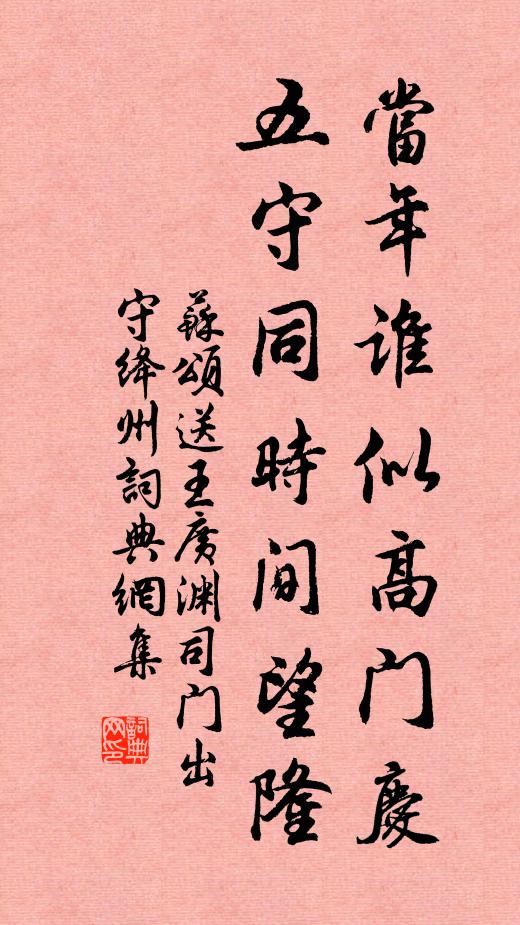 當年誰似高门慶
五守同時間望隆
蘇頌送王广渊司门出
守绛州詞典網集
詞典网印